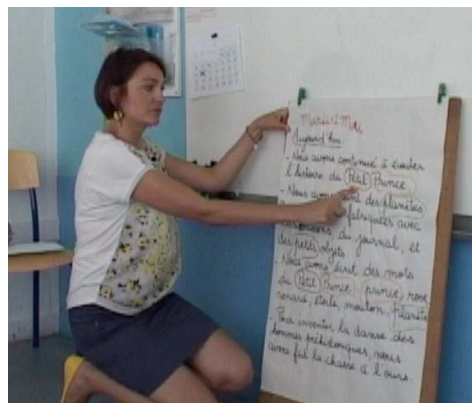 Mardi 12 Mai
Aujourd'hui
- Nous avons continué à écouter
l'histoire du Petit Prince.
- Nous avons peint des planètes
fabriquées avec
du journal, et
des petits objets.
- Nous avons écrit des mots
du Petit Prince : prince, rose
renard, étoile, mouton, planète
- Pour inventer la danse des
hommes préhistoriques, nous
avons fait la chasse à l'ours.